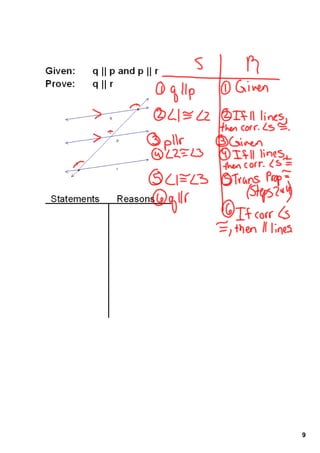 Given: q || p and p || r
Prove: q || r
S R
① q||p ① Given
② ∠1≅∠2 ② If || lines,
then corr. ∠s ≅.
③ p||r ③ Given
④ ∠2≅∠3 ④ If || lines,
then corr. ∠s ≅
⑤ ∠1≅∠3 ⑤ Trans Prop ≅
(Steps 2+4)
Statements Reasons ⑥ q||r
⑥ If corr ∠s
≅, then || lines
9